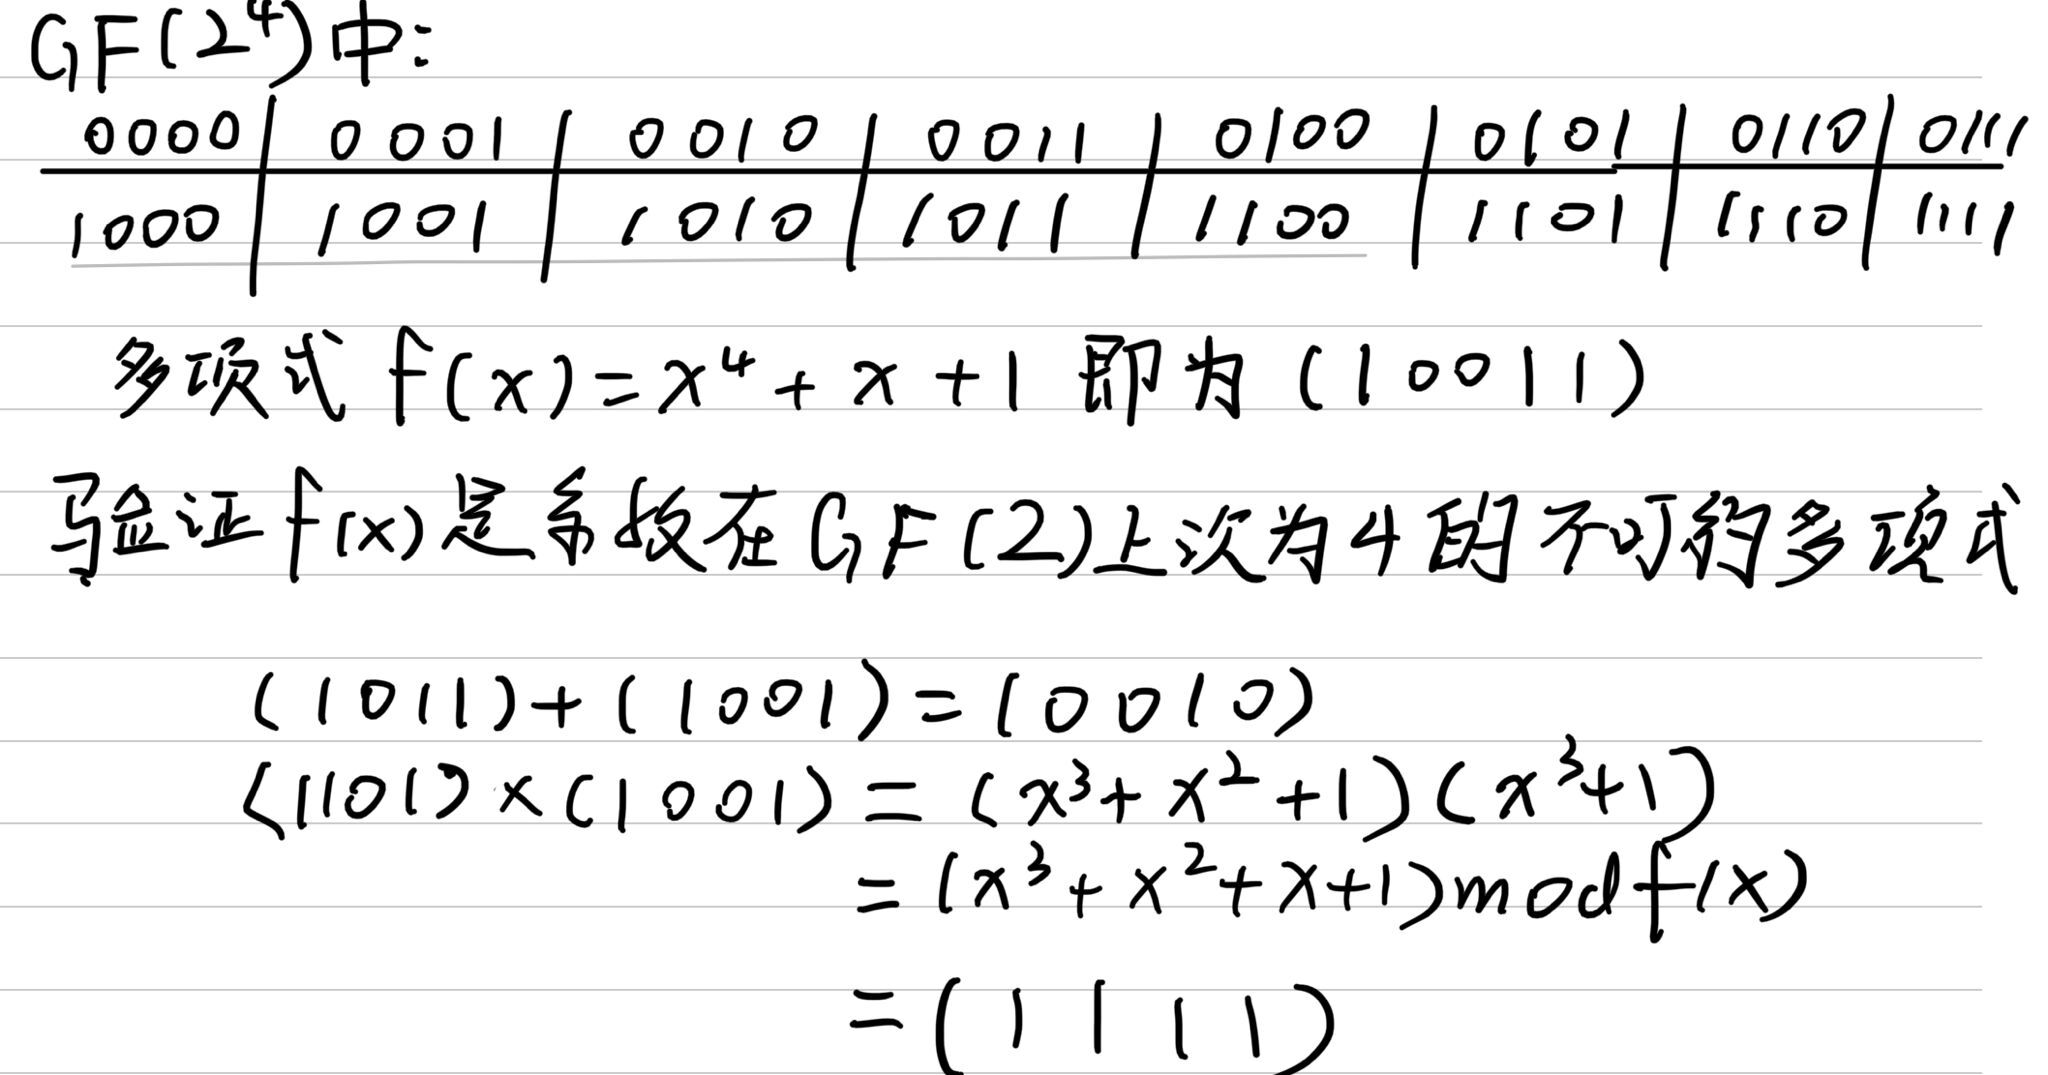 GF(2⁴)中:
0000 | 0001 | 0010 | 0011 | 0100 | 0101 | 0110 | 0111
1000 | 1001 | 1010 | 1011 | 1100 | 1101 | 1110 | 1111
多项式 f(x)=x⁴+x+1 即为 (10011)
验证f(x)是系数在GF(2)上次为4的不可约多项式
(1011)+(1001)=(0010)
(1101)×(1001)=(x³+x²+1)(x³+1)
=(x³+x²+x+1)modf(x)
=(1111)